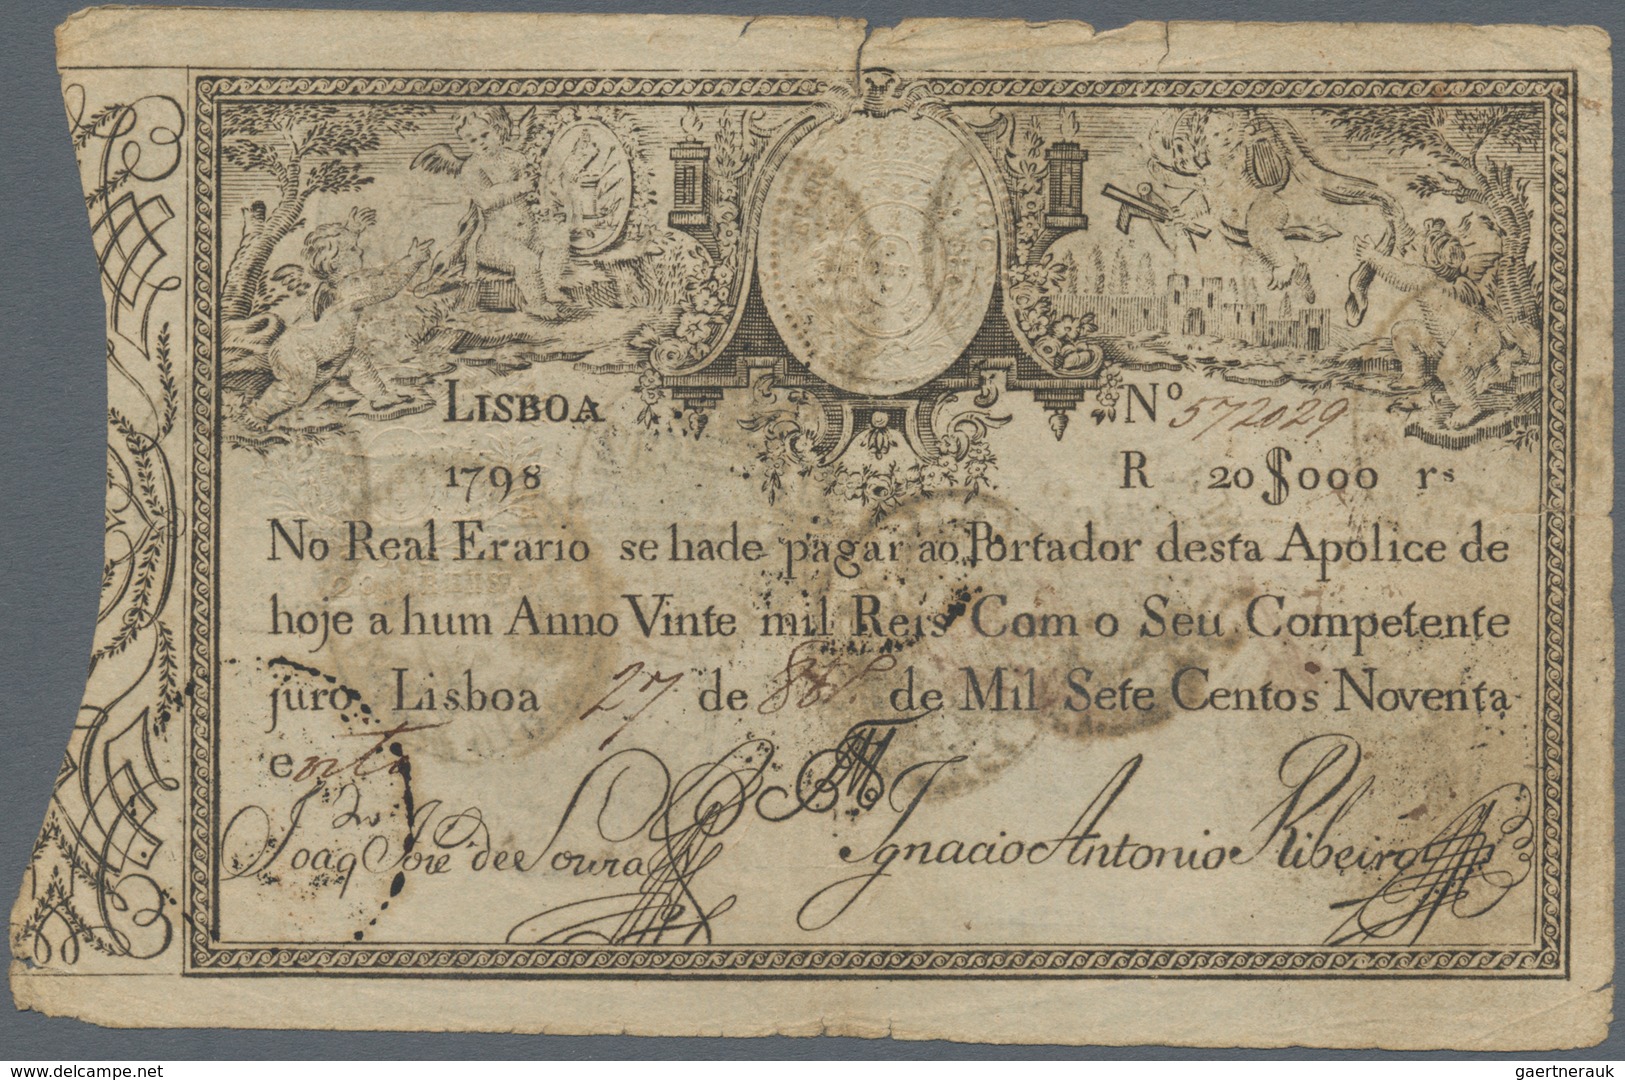 LISBOA
Nº 572029
1798
R 20$000 rs
No Real Erario se hade pagar ao Portador desta Apolice de
hoje a hum Anno Vinte mil Reis Com o Seu Competente
juro Lisboa 27 de 8br de Mil Sete Centos Noventa
e orto
Joaq José de Soura
Ignacio Antonio Ribeiro
delcampe.net
gaertnerauk